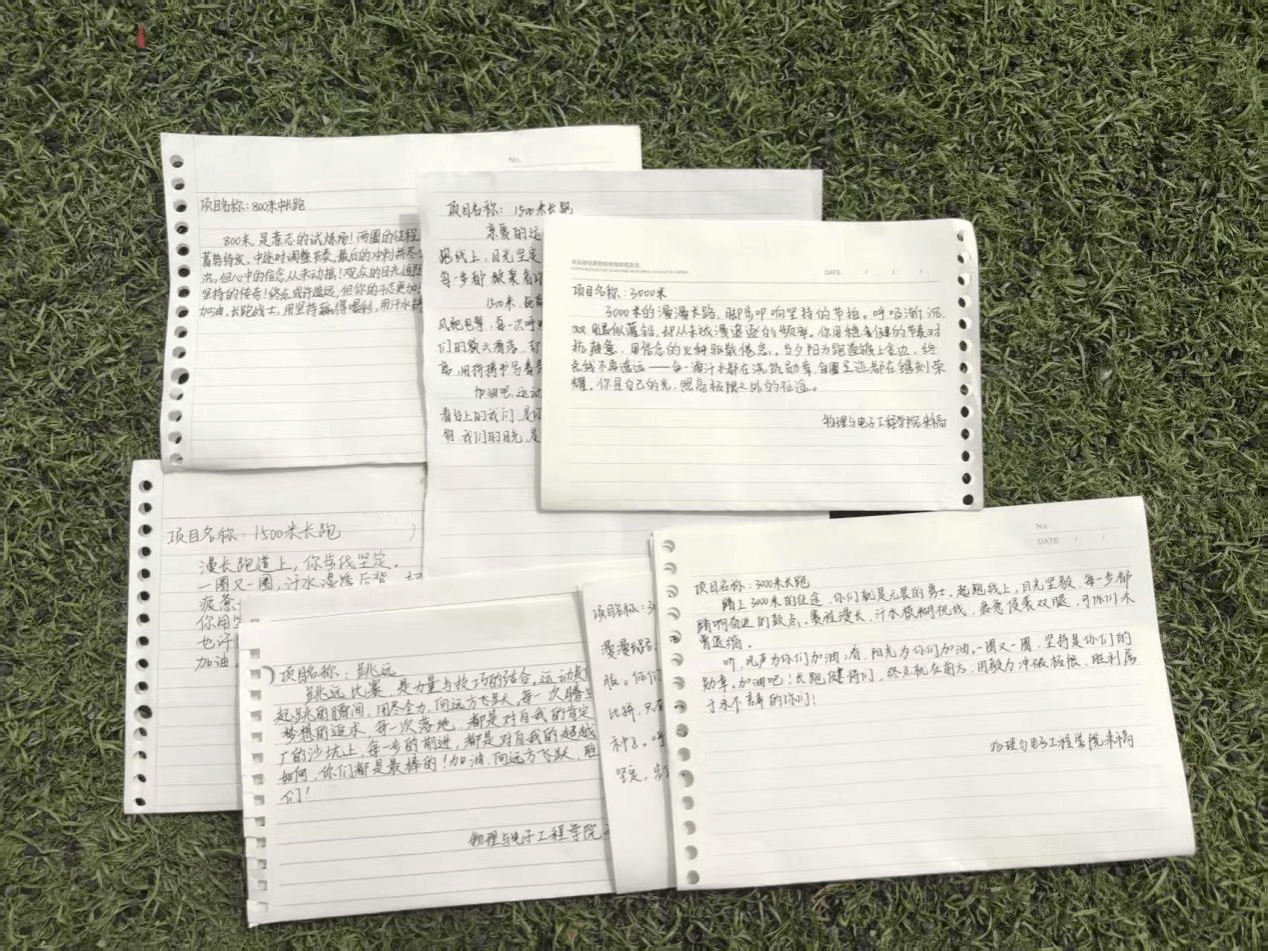 No.
项目名称:800米中长跑
800米,是意志的试炼场!两圈的征程,
蓄势待发,中途时调整节奏,最后的冲刺拼尽
沉,但心中的信念从未动摇!观众的目光追随
坚持的传奇!终点或许遥远,但你的子态更加
加油,长跑战士,用坚持赢得喝彩,用汗水
项目名称:1500米长跑
亲爱的运
跑线上,目光坚定
每一步都
1500米,
风驰电掣,每一次呼
们的额头滑落,
高,用拼搏书写着青
加油吧,运动
看台上的我们,是
贺,我们的目光,是
项目名称:3000米
3000米的漫漫长路,脚步叩响坚持的节拍。呼吸渐沉,
双腿似灌铅,却从未放慢追逐的频率。你用稳健的节奏对
抗疲惫,用信念的火种驱散倦意。当夕阳为跑道镀上金边,终
点线不再遥远——每一滴汗水都在浇筑勋章,每圈足迹都在镌刻荣
耀。你是自己的光,照亮极限之外的征途。
物理与电子工程学院来稿
项目名称:1500米长跑
漫长跑道上,你步伐坚定。
一圈又一圈,汗水浸湿后背,
疲惫
你用
也许
加油,
项目名称:跳远
跳远比赛,是力量与技巧的结合。运动
起跳的瞬间,用尽全力,向远方飞跃。每一次腾空
梦想的追求,每一次落地,都是对自我的肯定
广的沙坑上,每一步的前进,都是对自我的超越
如何,你们都是最棒的!加油,向远方飞跃,
们!
物理与电子工程学院
项目名称:3
漫漫
服。你们
比拼,只
种子。呼
坚定,
No
DATE / /
项目名称:3000米长跑
踏上3000米的征途,你们就是无畏的勇士。起跑线上,目光坚毅,每一步都
踏响奋进的鼓点。赛程漫长,汗水模糊视线,疲惫侵袭双腿,可你们未
曾退缩。
听,风声为你们加油;看,阳光为你们加油。一圈又一圈,坚持是你们的
勋章。加油吧!长跑健将们,终点就在前方,用毅力冲破极限,胜利属
于永不言弃的你们!
物理与电子工程学院来稿